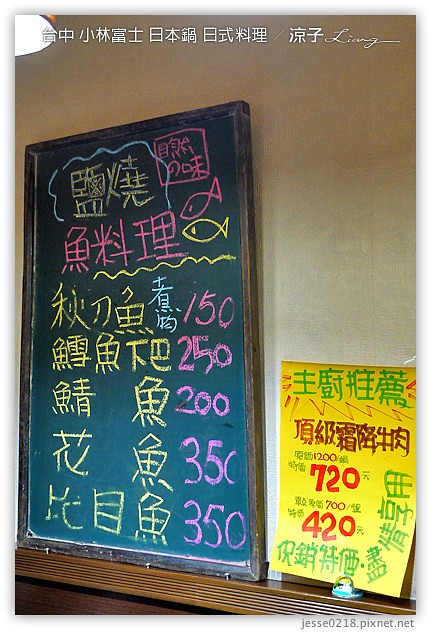 台中 小林富士 日本鍋 日式料理 / 涼子 Liang
自然の味
鹽燒
魚料理
秋刀魚 煮物 150
鱈魚下巴 250
鯖魚 200
花魚 350
比目魚 350
主廚推薦
頂級霜降牛肉
原價1200/鍋
特價720元
原價700/盤
特價420元
促銷特價
請享用
jesse0218.pixnet.net